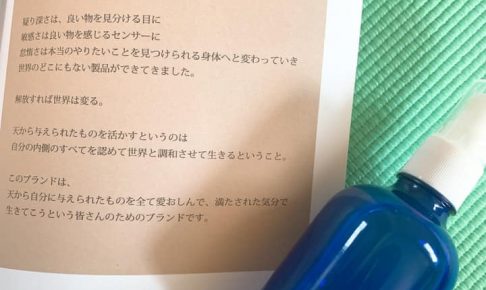 疑り深さは、良い物を見分ける目に
敏感さは良い物を感じるセンサーに
怠惰さは本当のやりたいことを見つけられる身体へと変わっていき
世界のどこにもない製品ができてきました。
解放すれば世界は変る。
天から与えられたものを活かすというのは
自分の内側のすべてを認めて世界と調和させて生きるということ。
このブランドは、
天から自分に与えられたものを全て愛おしんで、満たされた気分で
生きてこうという皆さんのためのブランドです。